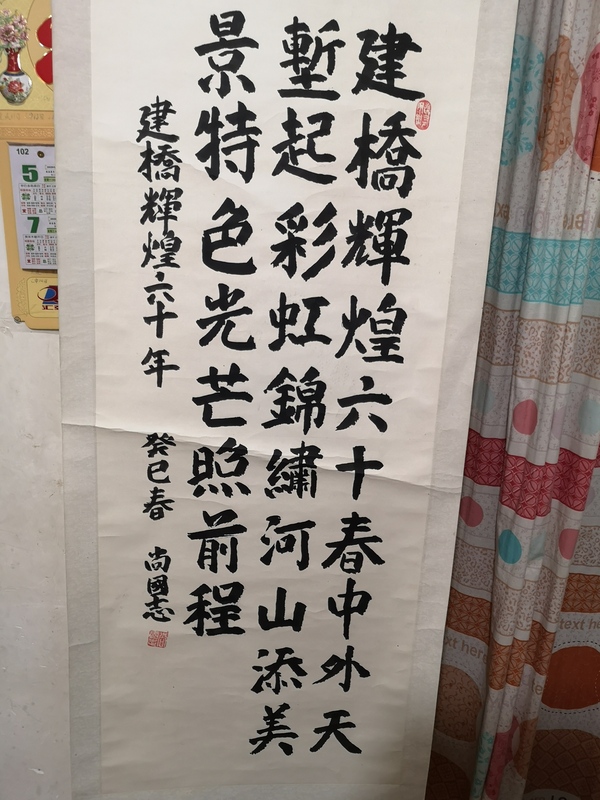 建橋輝煌六十春中外天
塹起彩虹錦繡河山添美
景特色光芒照前程
建橋輝煌·六十年 癸巳春 尚國志
102
5
7
text here
text her